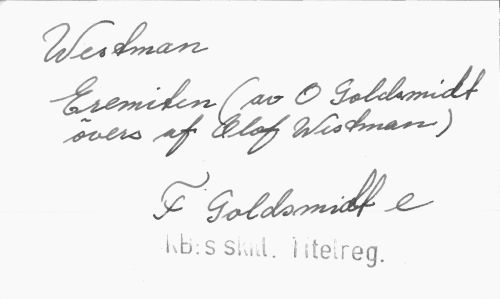 Westman
Eremiten (av O Goldsmidt
övers af Olof Westman)
F Goldsmidt e
KB:s skill. Titelreg.